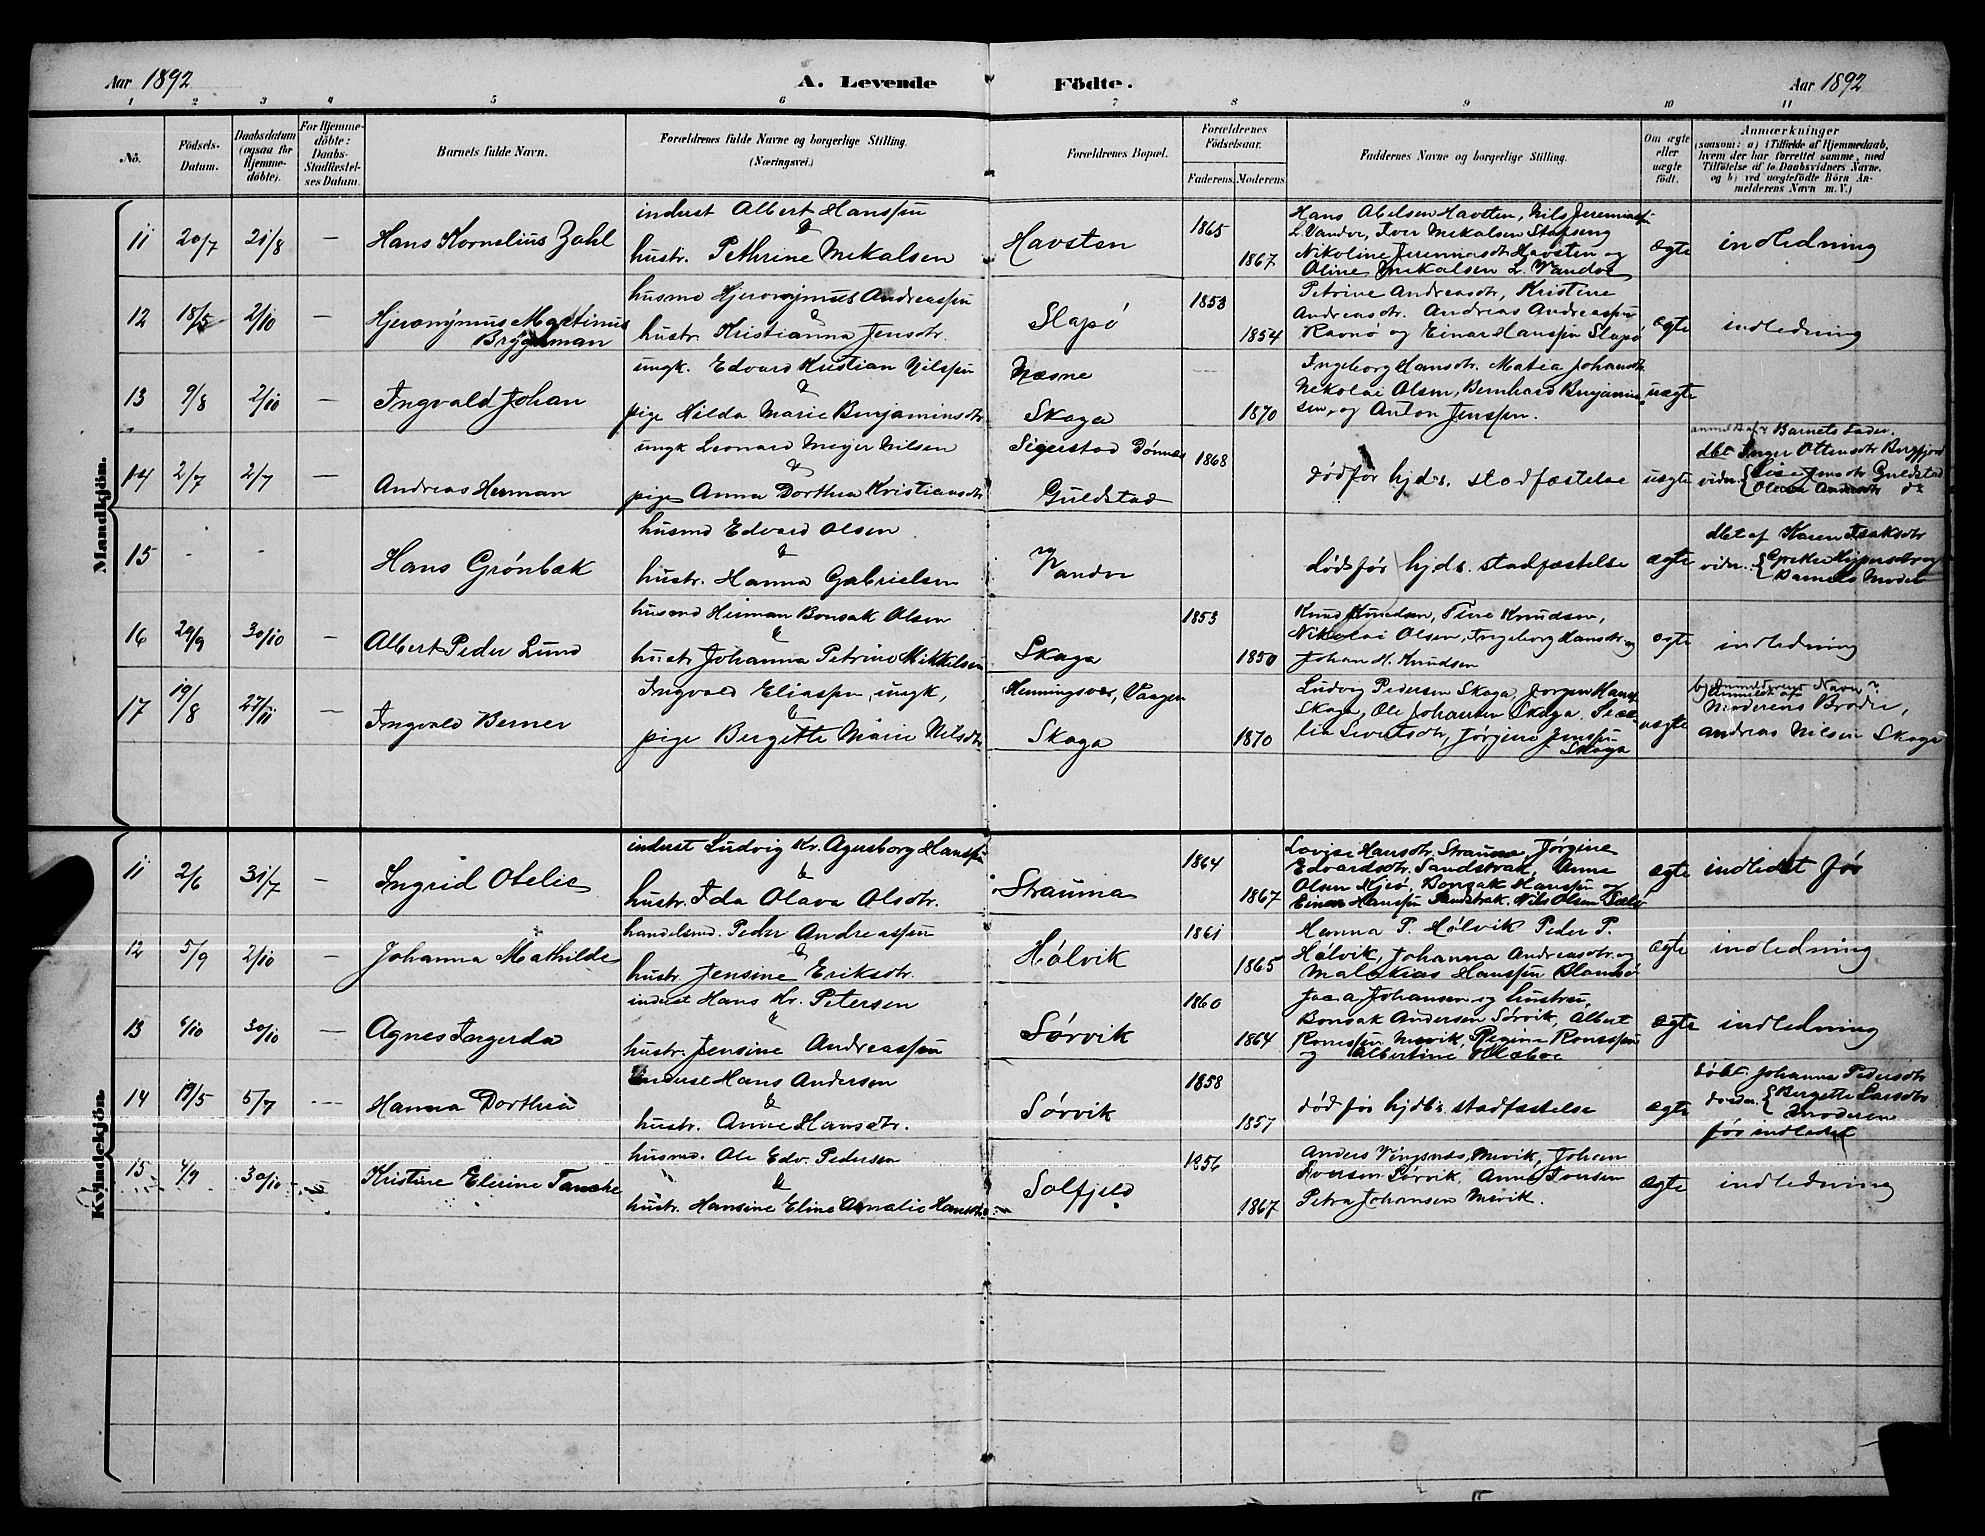 Aar 1892 A. Levende Födte. Aar 1892
1 2 3 4 5 6 7 8 9 10 11
Nö.
Födsels-
Datum.
Daabsdatum
(ogsaa for
Hjemme-
döbte).
For Hjemme-
döbte:
Daabs-
Stadfæstel-
ses Datum.
Barnets fulde Navn.
Forældrenes fulde Navne og borgerlige Stilling.
(Næringsvei.)
Forældrenes Bopæl.
Forældrenes
Födselsaar.
Faderens. Moderens.
Faddernes Navne og borgerlige Stilling.
Om ægte
eller
uægte
födt.
Anmærkninger
(saasom: a) i Tilfælde af Hjemmedaab,
hvem der har forrettet samme, med
Tilföielse af to Daabsvidners Navne,
og b) ved uægtefödte Börn An-
melderens Navn m. V.)
Mandkjön.
11 20/7 21/8 — Hans Kornelius Zahl
inderst Albert Hanssen
&
hustr. Pethrine Mekalsen
Havsten
1865
1867
Hans Abelsen Havsten, Nils Jeremias-
L. Vandve, Iver Mekalsen Stafseng
Nikoline Jeremiasdtr Havsten og
Oline Mekalsen L. Vandve
ægte indledning
12 18/5 2/10 — Hjeronymus Martinus
Bryggman
husmd Hjeronymus Andreassen
&
hustr. Kristianna Jensdtr.
Slapö
1853
1854
Petrine Andreasdtr, Kristine
Andreasdtr. Andreas Andreassen
Ravnö og Einar Hanssen Slapö
ægte indledning
13 9/8 2/10 — Ingvald Johan
ungk. Edvard Kristian Nilssen
&
pige Hilda Marie Benjaminsdtr
Næsne
Skaga
1870
Ingeborg Hansdtr. Matea Johansdtr.
Nekolai Olsen, Bernhard Benjamin-
sen, og Anton Jenssen.
uægte
anmeldt af Barnets Fader.
14 2/7 2/7 — Andreas Herman
ungk Leonard Meyer Nilsen
&
pige Anna Dorthea Kristiansdtr
Sigerstad Dønnes
Guldstad
1868
död för hjd s. stadfæstelse
uægte
dbt Inger Ottensdtr Bergfjord
vidn. Lise Jensdtr Guldstad
Olava Andersdtr ds
15 - - Hans Grönbæk
husmd Edvard Olsen
&
hustr. Hanna Gabrielsen
Vandve
död för hjd s. stadfæstelse
ægte
dbt af Karen Isaksdtr
vidn. Grethe Kippersdtr og
Barnets Moder
16 29/9 30/10 — Albert Peder Lund
husmd Heiman Bonsak Olsen
&
hustr Johanna Petrine Mikkelsen
Skaga
1853
1850
Knud Knudsen, Tine Knudsen,
Nikolai Olsen, Ingeborg Hansdtr og
Johan H. Knudsen
ægte indledning
17 19/8 27/11 Ingvald Berner
Ingvald Eliassen, ungk,
&
pige Bergitte Marie Nilsdtr
Henningsvær, Vaagen
Skaga
1870
Ludvig Pedersen Skaga, Jørgen Hans-
Skaga, Ole Johansen Skaga,
Sivertsdtr, Jørgine Jenssen
Skaga
uægte
b) Anmelderens Navn:
Anmeldt af
Moderens Broder,
Andreas Nilsen Skaga
Kvindekjön.
11 2/6 31/7 — Ingrid Otelie
inderst Ludvig Kr. Agersborg Hanssen
&
hustr. Ida Olava Olsdtr.
Strauma
1864
1867
Lovise Hansdtr. Strauma, Jørgine
Edvardsdtr. Sandstrak, Anne
Olsen Hjeö, Bonsak Hanssen og
Einar Hanssen Sandstrak. Nils Olsen
ægte indledet för
12 5/9 2/10 — Johanna Mathilde
handelsmd. Peder Andreassen
&
hustr. Jensine Eriksdtr.
Hölvik
1861
1865
Hanna P. Hölvik Peder P.
Hölvik, Johanna Andreasdtr. og
Malakias Hanssen
ægte indledning
13 6/10 30/10 — Agnes Ingerda
inderst Hans Kr. Petersen
&
hustr. Jensine Andreassen
Sörvik
1860
1864
Johansen og hustru,
Bonsak Andersen Sörvik, Albert
Ronessen Mevik, Regine Ronessen
og Albertine
ægte indledning
14 19/5 5/7 --- Hanna Dorthea
inderst Hans Andersen
&
hustr. Anne Hansdtr.
Sörvik
1858
1857
död för hjdb s. stadfæstelse
ægte
döbt Johanna Pedersdtr
Bergitte Larsdtr
Moderen
för indledet
15 4/9 30/10 Kristine Elerine Tanche
husmd. Ole Edv. Pedersen
&
hustr. Hansine Eline Amalie Hansdtr.
Solfjeld
1856
1867
Anders Vingsnes, Mevik, Johan
Iversen Sörvik, Anne Iversen
Petra Johansen Mevik.
ægte indledning